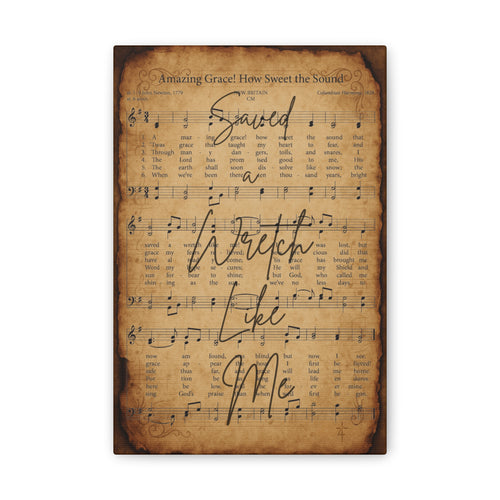 Amazing Grace! How Sweet the Sound
Newton, 1779
NEW BRITAIN
CM
Columbian Harmony, 1829
Saved
a
Wretch
Like
Me
1 A maz ing grace! how sweet the sound that
2 'Twas grace that taught my heart to fear, and
3 Through man y dan gers, toils, and snares, I
4 The Lord has prom ised good to me, His
5 The earth shall soon dis solve like snow; the
6 When we've been there ten thou sand years, bright
saved a wretch like was lost, but
grace my fears cious did this
have al grace has brought
Word my be cures; He will my Shield and
sun bear to shine; but God, who called me
shin ing as the sun, we've no less days,
now am found, blind but now, I see.
grace ap pear the I first be
safe thus far, and will lead me home
Por tion be long as life
here be low, will be for ev er
sing God's praise than when we'd first be gun.